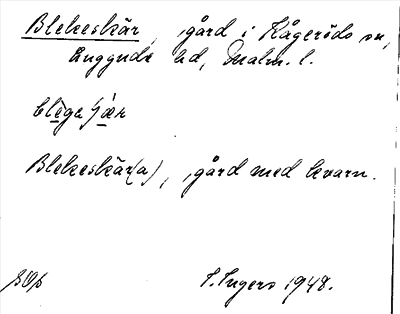 Blekeskär, gård i Kågeröds sn,
Luggude hd, Malm. l.
Blekeskär(a), gård med kvarn.
S. Ingers 1948.